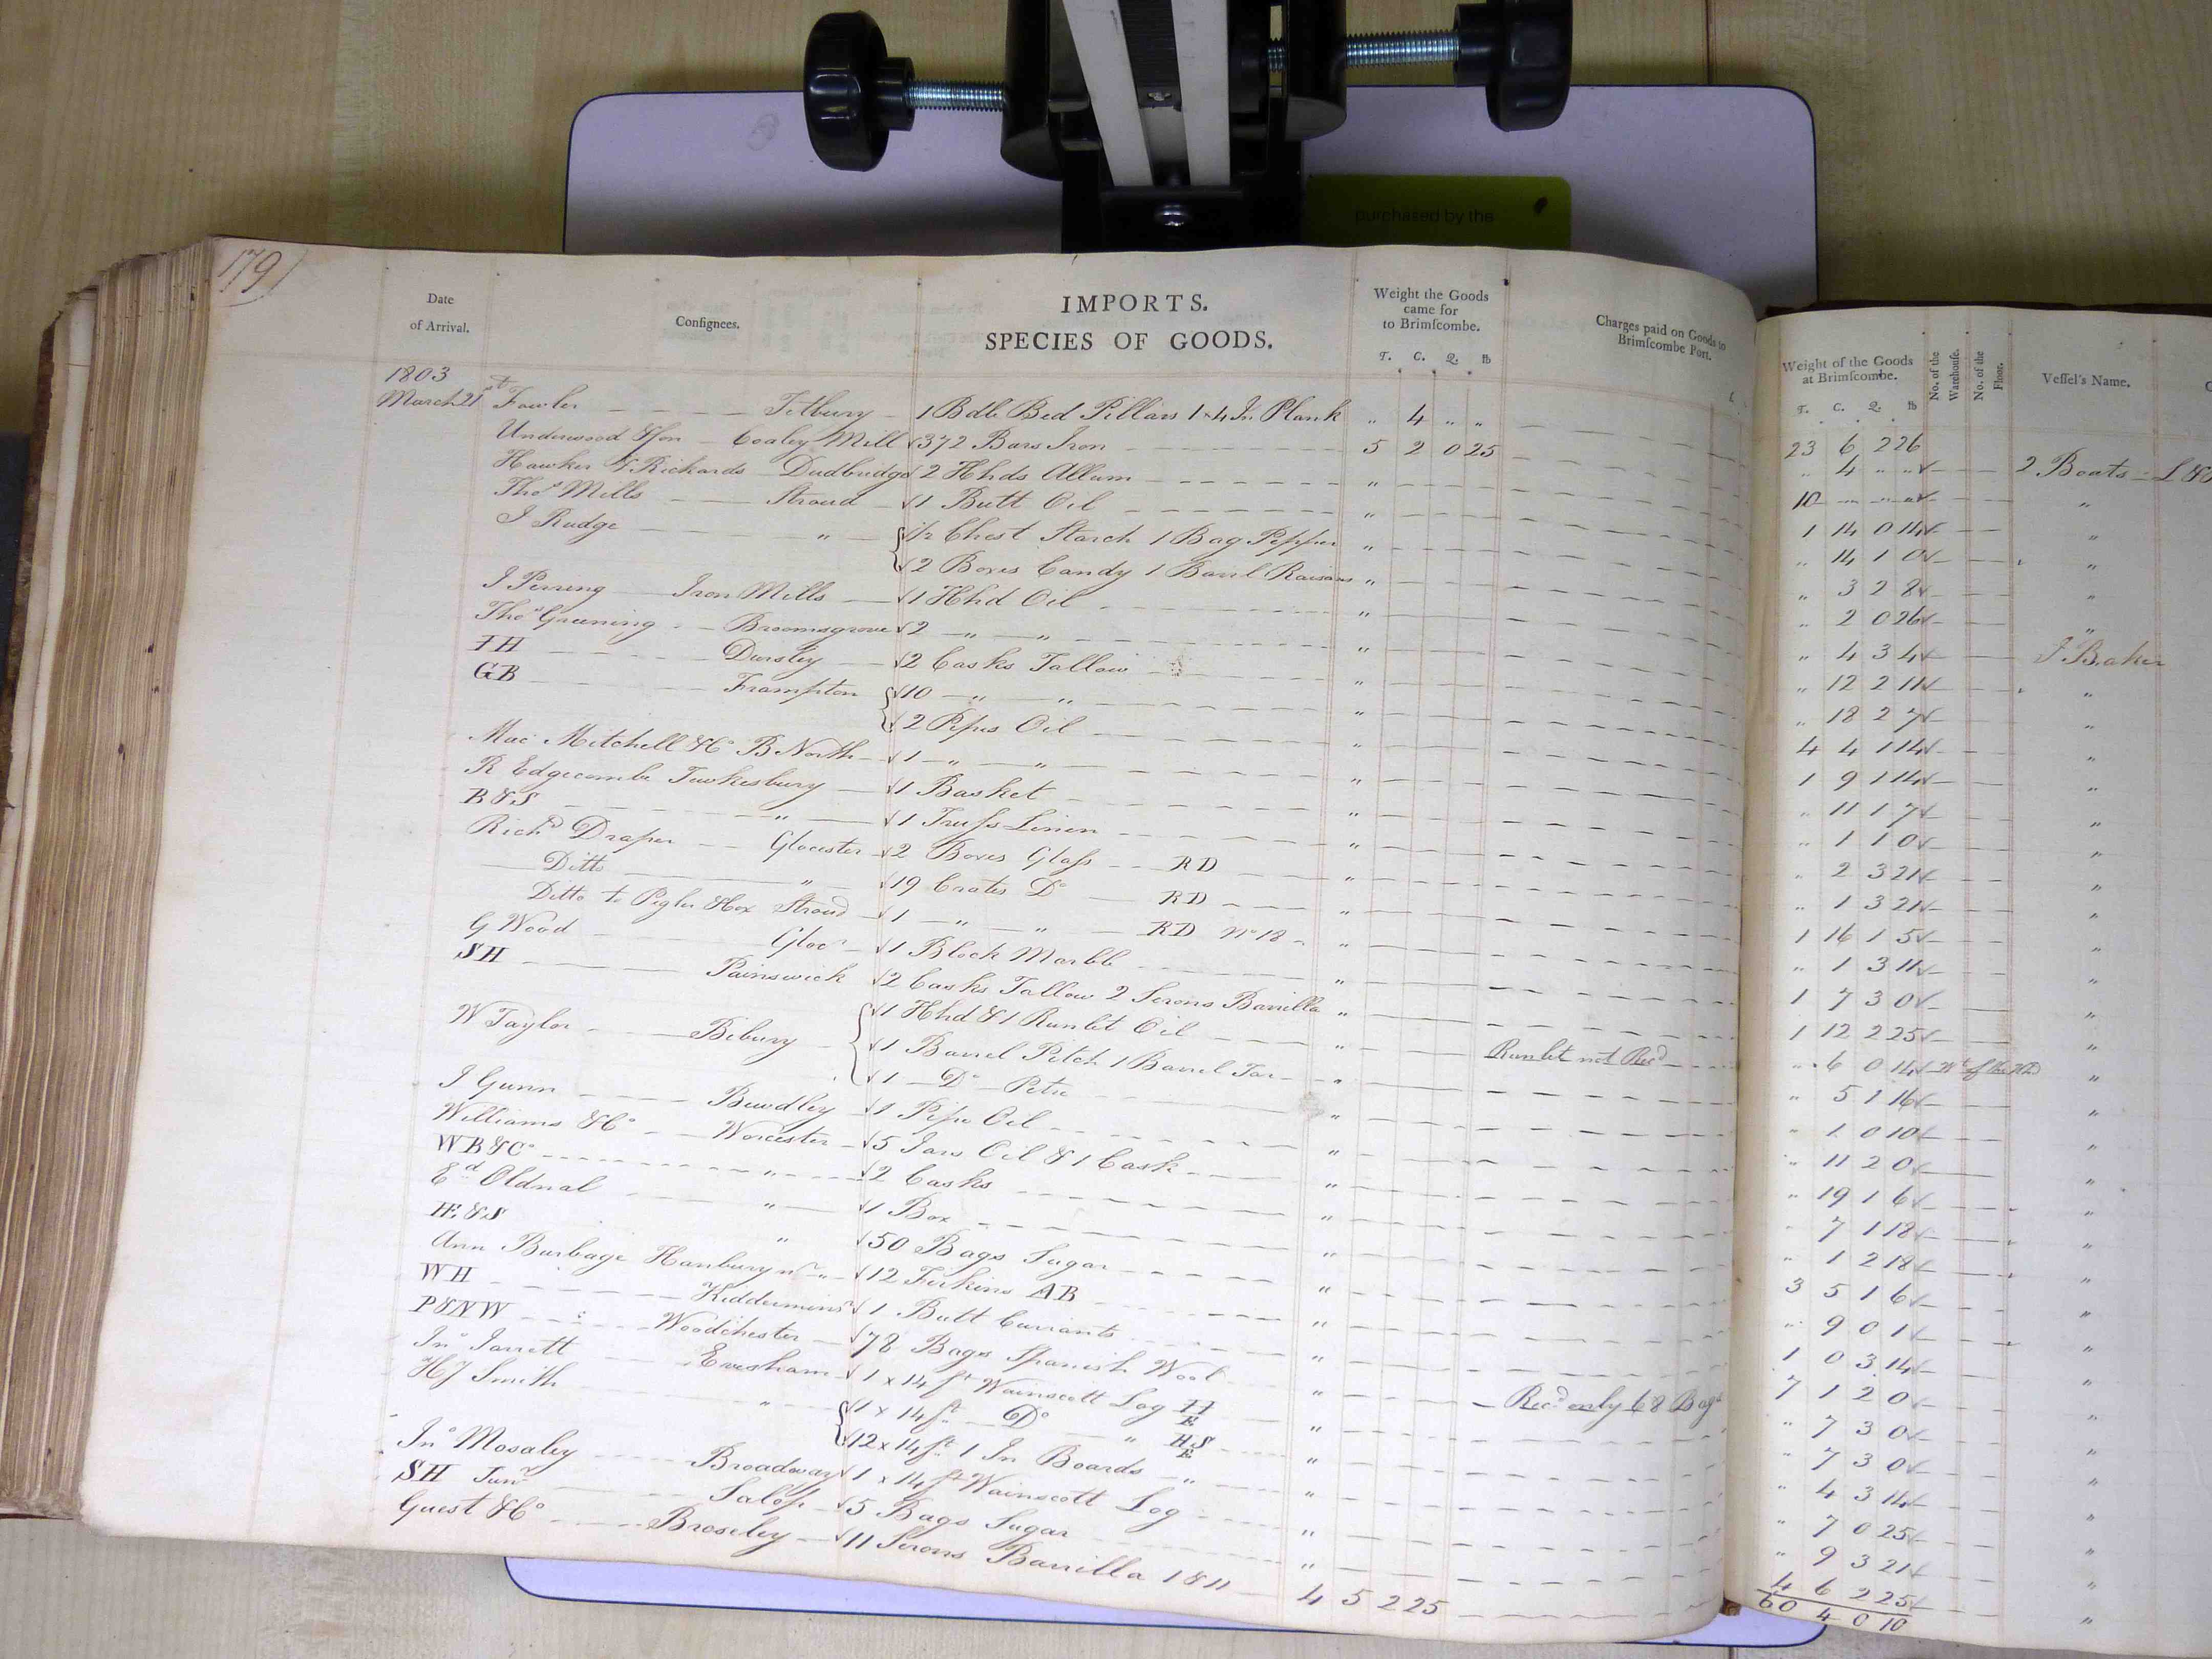 purchased by the
179
Date of Arrival. Consignees. IMPORTS. SPECIES OF GOODS. Weight the Goods came for to Brimscombe. T. C. Q. lb Charges paid on Goods to Brimscombe Port.
Weight of the Goods at Brimscombe. T. C. Q. lb No. of the Warehouse. No. of the Floor. Vessel's Name.
1803
23 6 2 26
March 21st Fowler Tetbury 1 Bdle Bed Pillars 1 x 4 In Plank " 4 " " " 4 " " 2 Boats
Underwood & Son Coaley Mill 372 Bars Iron 5 2 0 25 10 " " " "
Hawker & Richards Dudbridge 2 Hhds Allum " 1 14 0 14 "
Thos Mills Stroud 1 Butt Oil " " 14 1 0 "
J Rudge " 1/2 Chest Starch 1 Bag Pepper " " 3 2 8 "
2 Boxes Candy 1 Barrl Raisons " " 2 0 26 "
J Perring Iron Mills 1 Hhd Oil " " 4 3 4 J Baker
Thos Greening Broomsgrove 2 " " " " 12 2 11 "
IH Dursley 2 Casks Tallow " " 18 2 7 "
GB Frampton 10 " " " 4 4 1 14 "
2 Pipes Oil " 1 9 1 14 "
Mac Mitchell & Co B North 1 " " " " 11 1 7 "
R Edgecombe Tewkesbury 1 Basket " " 1 1 0 "
B&S " 1 Truss Linen " " 2 3 21 "
Richd Draper Glocester 2 Boxes Glass RD " " 1 3 21 "
Ditto " 19 Crates Do RD " 1 16 1 5 "
Ditto to Pegler & Cox Stroud 1 " " RD No 18 " " 1 3 11 "
G Wood Glocr 1 Block Marble " 1 7 3 0 "
SH Painswick 2 Casks Tallow 2 Serons Barrilla " 1 12 2 25 "
W Taylor Bibury 1 Hhd & 1 Runlet Oil " Runlet not Recd " 6 0 14 Wt of the Hhd "
1 Barrel Pitch 1 Barrel Tar " " 5 1 16 "
1 Do Petre " 1 0 10 "
J Gunn Bewdley 1 Pipe Oil " " 11 2 0 "
Williams & Co Worcester 5 Jars Oil & 1 Cask " " 19 1 6 "
WB&Co " 2 Casks " " 7 1 18 "
Ed Oldnal " 1 Box " " 1 2 18 "
H&S " 50 Bags Sugar " 3 5 1 6 "
Ann Burbage Hanbury 12 Firkins AB " " 9 0 1 "
WH Kidderminr 1 Butt Currants " 1 0 3 14 "
P&NW Woodchester 78 Bags Spanish Wool " Recd only 68 Bags 7 1 2 0 "
Jno Jarrett Evesham 1 x 14 ft Wainscott Log " " 7 3 0 "
HJ Smith " 1 x 14 ft Do " HS E " " 7 3 0 "
12 x 14 ft 1 In Boards " " " 4 3 14 "
Jno Mosaley Broadway 1 x 14 ft Wainscott Log " " 7 0 25 "
SH Junr Salop 5 Bags Sugar " " 9 3 21 "
Guest & Co Broseley 11 Serons Barrilla 1 @ 11 4 5 2 25 4 6 2 25 "
60 4 0 10